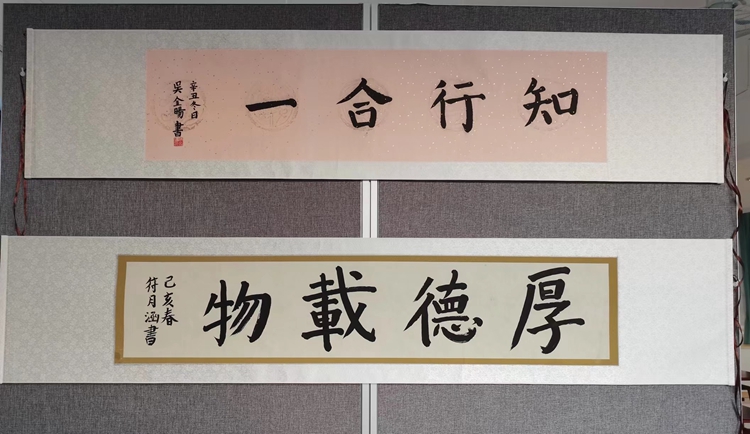 知行合一
辛丑冬日
吴全旸書
厚德載物
己亥春
符月涵書